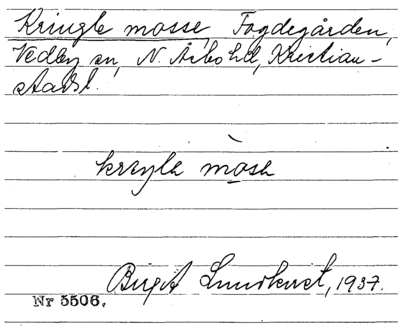 Kringle mosse, Fogdegården,
Vedby sn, N. Åsbo hd, Kristian-
stads l.
mosa
Birgit Lundkvist, 1937.
Nr 5506.